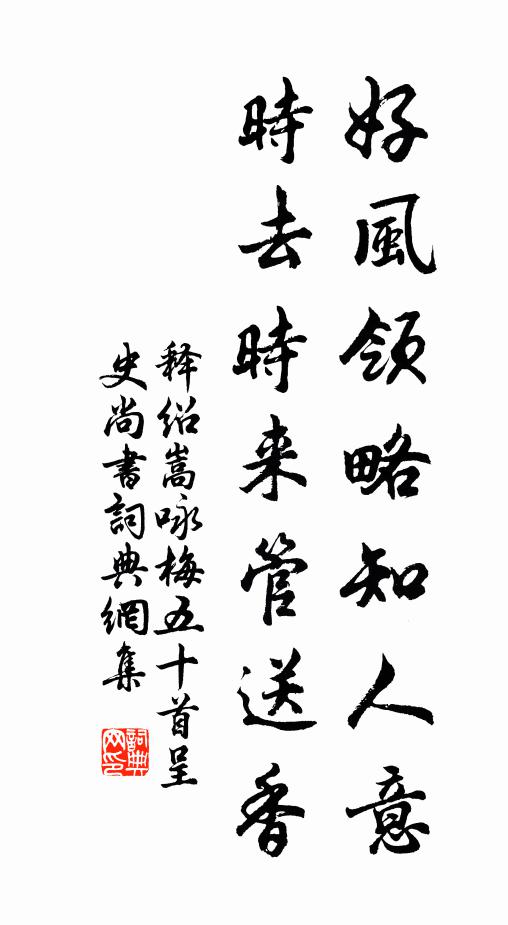 好風領略知人意
時去時来管送香
釋紹嵩咏梅五十首呈
史尚書詞典網集
詞典
网印